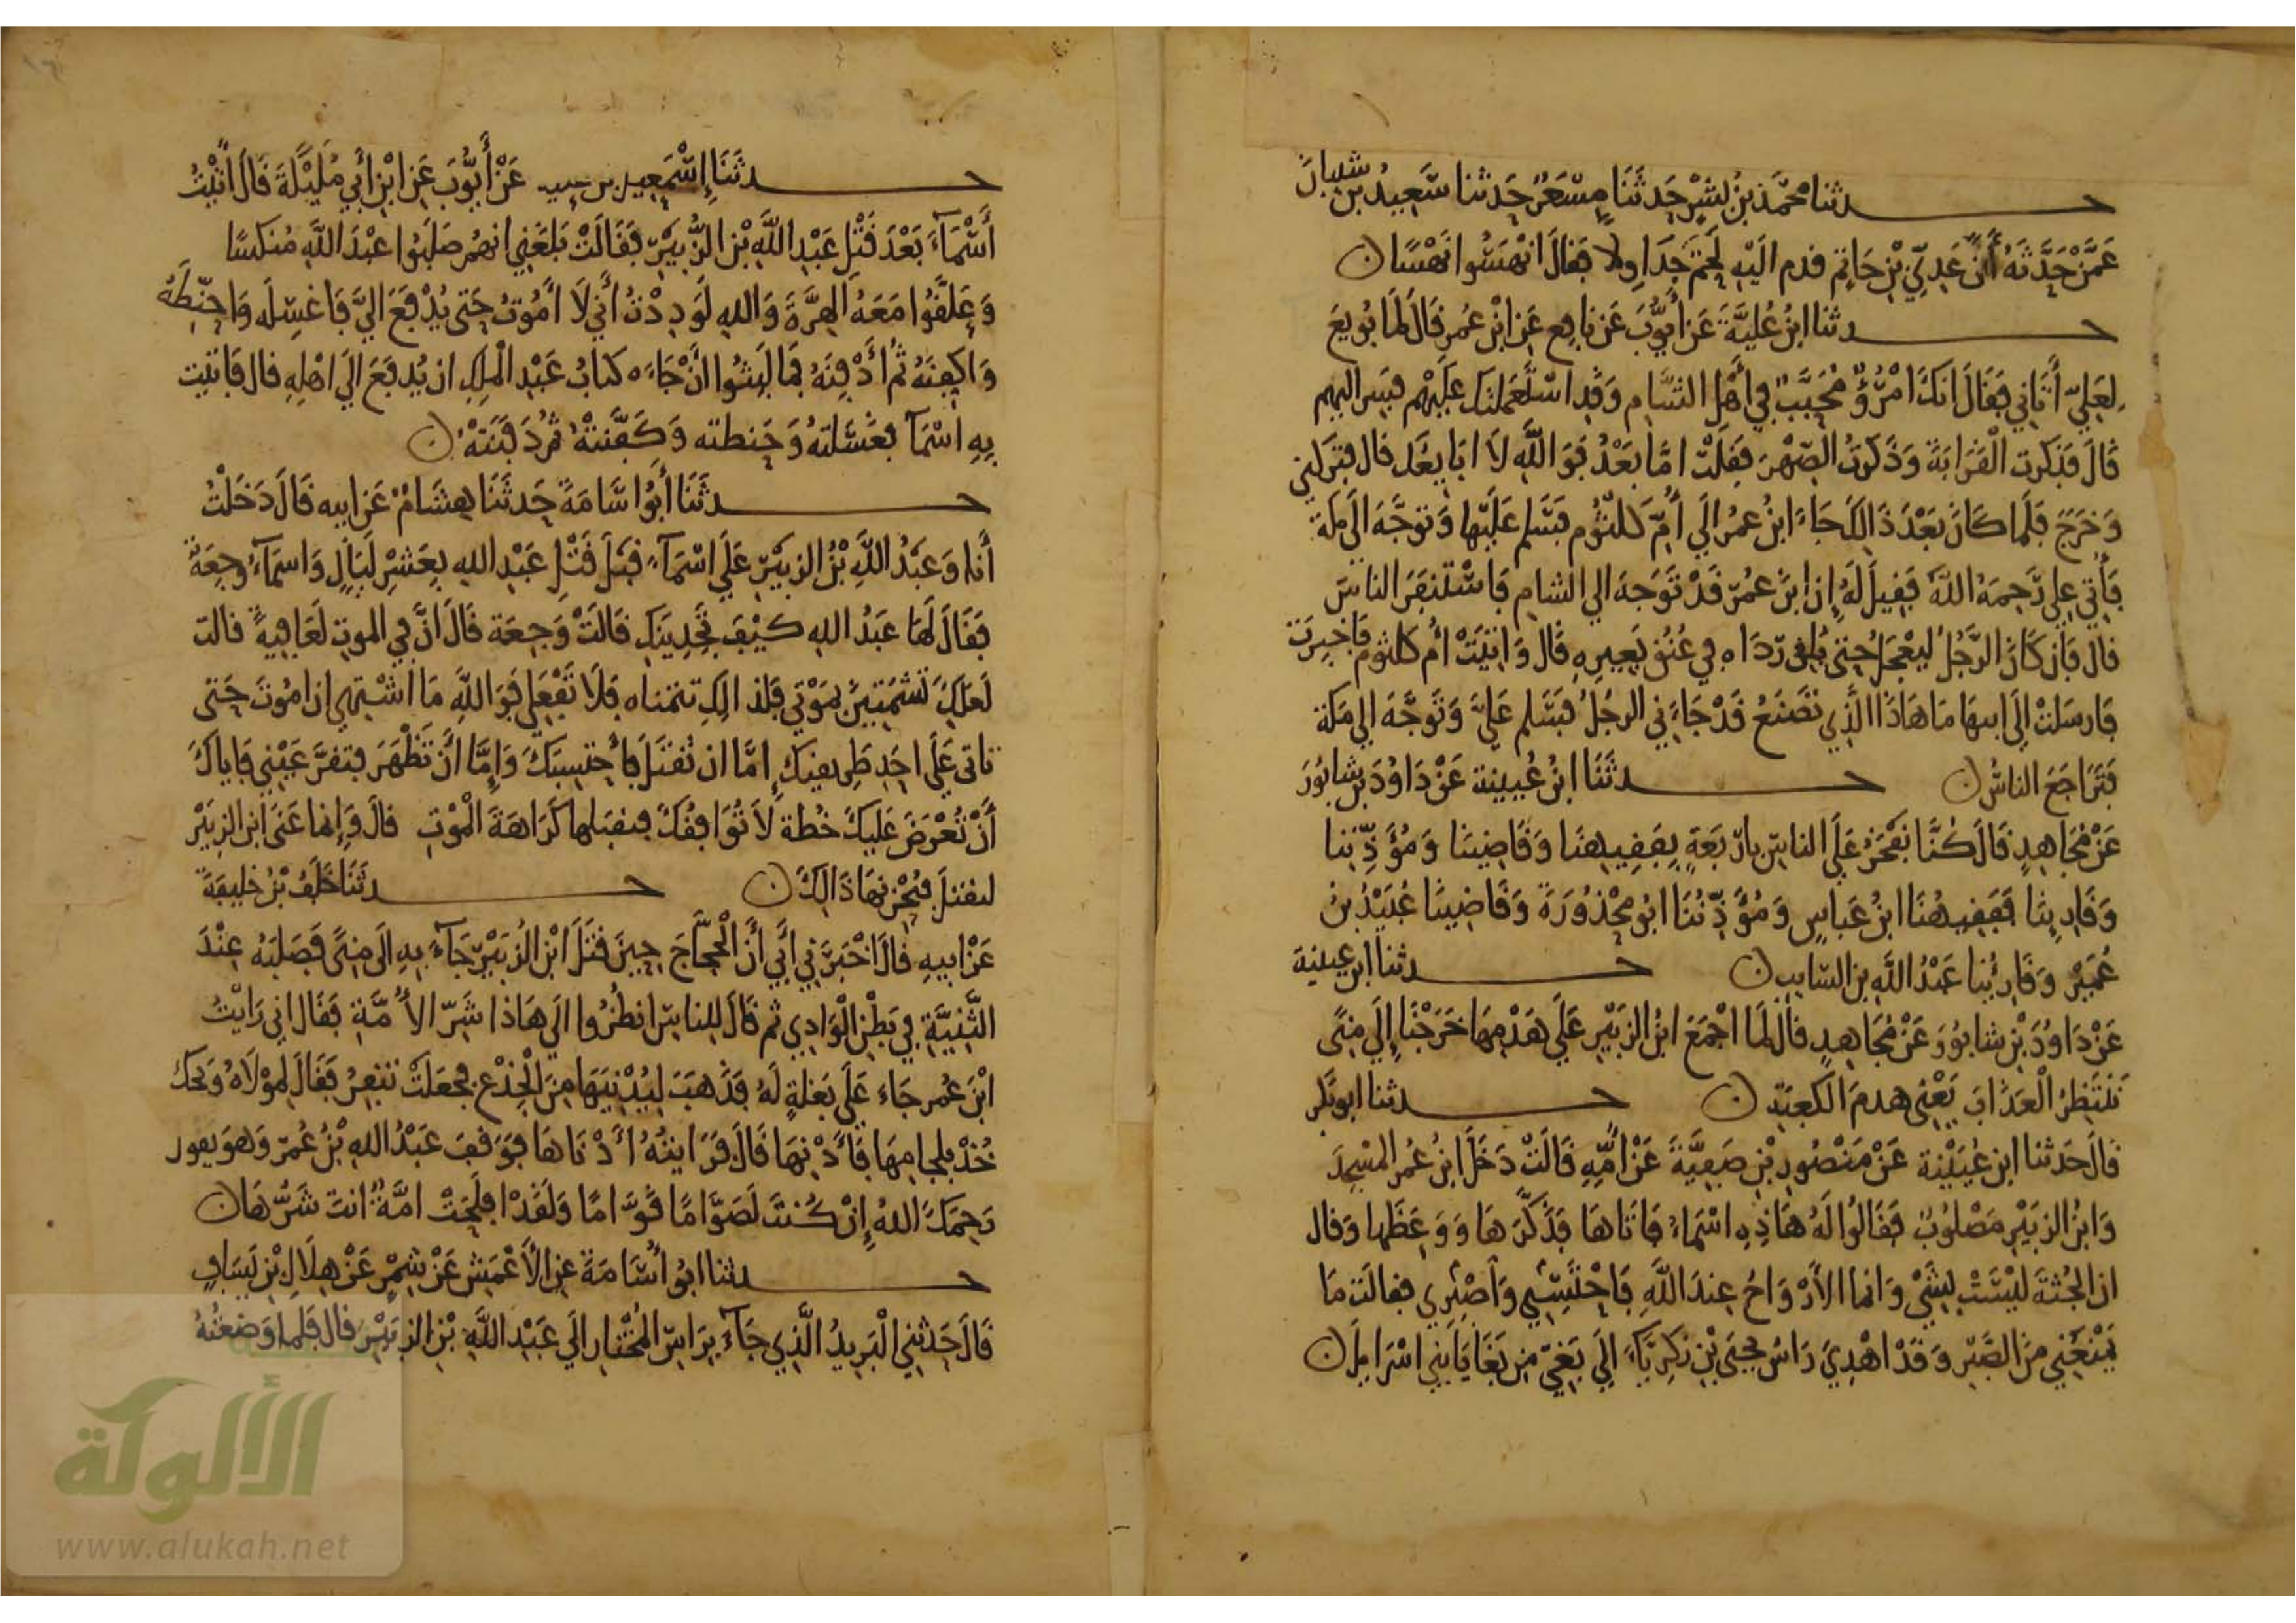 حدثنا محمد بن بشر حدثنا مسعر حدثنا سعيد بن شيبان
عَمَّنْ حَدَّثَهُ أَنَّ عَدِيَّ بْنَ حَاتِمٍ قدم اليْهِ لَحْمَ جَدَاوِلا فقالَ انْهَسُوا نَهْسًا
حدثنا ابنُ عُلَيَّةَ عَنْ أَيُّوبَ عَنْ نافِعٍ عَنِ ابْنِ عُمر قَالَ لما بُويعَ
لِعَلِيّ أَتَانِي فَقَالَ انكَ امْرُؤٌ مُحَبَّبٌ فِي أَهْلِ الشَّامِ وَقد اسْتَعملتك عليْهِم فسر اليهم
قَالَ فَذكرت الْقَرَابَةَ وَذَكَرْتُ الصِّهْرَ فقلْت امَّا بَعْدُ فَوَاللَّهِ لَا ابَايعُكَ قال فتركني
وَخَرَجَ فَلَمَا كَانَ بَعْدَ ذَالِكَ جَاءَ ابنُ عمرُ الَي أُمِّ كلْثُوم فَسَلم عَلَيْها وَتوَجَّهَ الَى مكة
فَأُتي علي رَّحِمَهُ اللَّهُ فَقِيلَ لَهُ إِن ابنَ عمُرَ قَدْ تَوَجَهَ الي الشام فَاسْتَنفَرَ الناسَ
قال فَإِن كَانَ الرَّجُلُ ليَعْجَلُ حتى يُلقى رِدَاه في عُنُقِ بَعِيرِهِ قَالَ وَاتيَتْ أُم كلثوم فَاخبِرَت
فَارسَلتْ الَي ابيهَا مَا هَاذَا الَّذِي تَصْنَعُ قَدْ جَاءَنِي الرجُلُ فَسَلم عَلَيَّ وَتَوَجَّهَ الي مَكة
فَتَرَاجَعَ الناسُ حدثَنَا ابنُ عُيينة عَنْ دَاوُدَ بن شابُورَ
عَنْ مُجَاهِدٍ قَالَ كُنَّا نَفْخَرُ عَلَى الناس بارْبَعَةٍ بِفَقِيهِنَا وَقَاضِينَا وَمُؤَذِّنِنا
وَقَارِينَا فَفَقِيهُنَا ابنُ عَباسٍ وَمُؤَذِّنُنَا ابُو مَحْذُورَةَ وَقَاضِينَا عُبَيْدُ بنُ
عُمَيْرٍ وَقَارِئُنا عَبْدُ اللَّهِ بن السّايب حدثنا ابن عيينة
عَنْ دَاوُدَ بْنِ شابُورَ عَنْ مُجَاهِدٍ قالَ لَمَا اجْمَعَ ابنُ الزبَيْرِ عَلَي هَدْمِهَا خَرَجْنَا إِلَي مِنًى
نَنْتَظِرُ الْعَذَابَ يَعْنِي هدمَ الكَعبَةِ حدثنا ابو بَكر
قَالَ حَدثنا ابن عُيَيْنة عَنْ مَنْصُورِ بْنِ صَفِيَّةَ عَنْ امِّهِ قَالَتْ دَخَلَ ابنُ عُمرُ المسْجِدَ
وَابنُ الزبَيْرِ مَصْلوبٌ فَقَالُوا لَهُ هَاذِهِ اسْمَاءُ فَاتَاهَا فَذَكَّرَهَا وَوَعَظَها وَقال
ان الجُثةَ ليْسَتْ بِشَيْ وَانما الأرْوَاحُ عِندَ اللَّهِ فَاحْتَسِبِي وَاصْبِرِي فقالَت مَا
يَمْنَعُنِي مِنَ الصَّبْرِ وَقَدْ اهْدِيَ رَاسُ يحيَى بْنِ زَكَرِيَّاءَ الَي بَغِيٍّ مِن بَغَايَا بَنِي اسْرَايِلَ
حدثَنَا إِسْمَعِيل بن عَنْ أَيُّوبَ عَنِ ابْنِ أَبِي مُلَيْكَةَ قَالَ أَتَيْتُ
أَسْمَآءَ بَعْدَ قَتْلِ عَبْدِ اللَّهِ بْنِ الزُّبَيْرِ فَقَالَتْ بَلَغَنِي انهُمْ صَلَبُوا عَبْدَ اللَّهِ مُنكسًا
وَعَلَّقُوا مَعَهُ الهرَّةَ وَاللهِ لَوَدِدْتُ أَنِّي لَا أَمُوتُ حَتى يُدْفَعَ اليَّ فَاغسِّلَه وَاحَنِّطَهُ
وَاكفِنَهُ ثُم أَدْفِنَهُ فمَا لَبِثُوا انْ جَاءَه كتابُ عَبْدِ الْمَلِكِ ان يُدفَعَ الَي اهْلِهِ قال فَاتيت
بِهِ اسْمَآ فغَسَّلتهُ وَحَنطته وَكَفَّنتْهُ ثُم دَفَنَتْهُ
حدثَنَا أَبُو اسَّامَةَ حَدثَنَا هِشَامٌ عَن ابيه قَالَ دَخَلْتُ
أَنا وَعَبْدُ اللَّهِ بْنُ الزبَيْرِ عَلَي اسْمَآءَ قبْلَ قَتْلِ عَبْدِ اللهِ بِعَشْرِ لَيَالٍ وَاسْمَآءُ وجِعَةٌ
فقَالَ لَهَا عَبْدُ اللهِ كيْفَ تَجِدِينَكِ قالَتْ وَجِعَة قَالَ انَّ فِي الموتِ لَعَافِيةً قالت
لَعلكَ تَشْتَهِي مَوْتي فلذالِكِ تتمناه فَلَا تَفْعَل فَوَاللَّهِ مَا اشْتهي ان امُوتَ حَتى
تاتي عَلَي احَدِ طَرِيقيكَ إِمَّا ان تُقتَلَ فأحْتَسِبَكَ وَإِمَّا أَنْ تَظْهَرَ فتقرَّ عَيْنِي فَإياكَ
أَنْ تُعْرَضَ عَليكَ خُطة لَا تُوَافِقُكَ فتقبَلها كَرَاهَةَ الْمَوْتِ قالَ وَإِنما عَنَى ابن الزبَيْر
ليُقتلَ فيُحْزِنهَا ذَالِكَ حدثَنَا خَلَفُ بْنُ خَلِيفَةَ
عَنْ ابيهِ قَالَ اخْبَرَنِي أَبِي أَنَّ الْحجَّاجَ حِينَ قتَلَ ابْنَ الزُبَيْر جَآءَ بِهِ الَى مِنًى فَصَلبَهُ عِنْدَ
الثَّنِيَّةِ فِي بَطْنِ الْوَادِي ثم قَالَ لِلناسِ انظُرُوا الَي هَاذا شَرّ الأُمَّةِ فقَالَ اني رَايْتُ
ابْنَ عُمر جَاءَ عَلَى بَغلةٍ لَهُ فَذهَبَ لِيُدْنِيَهَا مِنَ الْجِذْعِ فجعَلَتْ تنفِرُ فقَالَ لِمَوْلَاهُ وَيحَك
خُذْ بلِجامِهَا فَأَدْنِهَا قَالَ فَرَايتُهُ أَدْنَاهَا فَوَقَفَ عَبْدُ اللهِ بْنُ عُمَرَ وَهوَ يقول
رَحِمَكَ اللهُ إِنْ كُنتَ لَصَوَّامًا قَوَّامًا وَلَقَدْ افلَحَتْ امَّةٌ انتَ شَرُّهَا
حدثنا ابُو أُسَامَةَ عن الأَعْمَشِ عَنْ شِمْرٍ عَنْ هِلَالِ بْنِ يَسَافٍ
قَالَ حَدثنِي الْبَرِيدُ الَّذِي جَآءَ بِرَاسِ الْمُخْتَارِ الَي عَبْدِ اللَّهِ بْنِ الزبَيْرِ قال فَلَما وَضَعْتُهُ
الألوكة
www.alukah.net